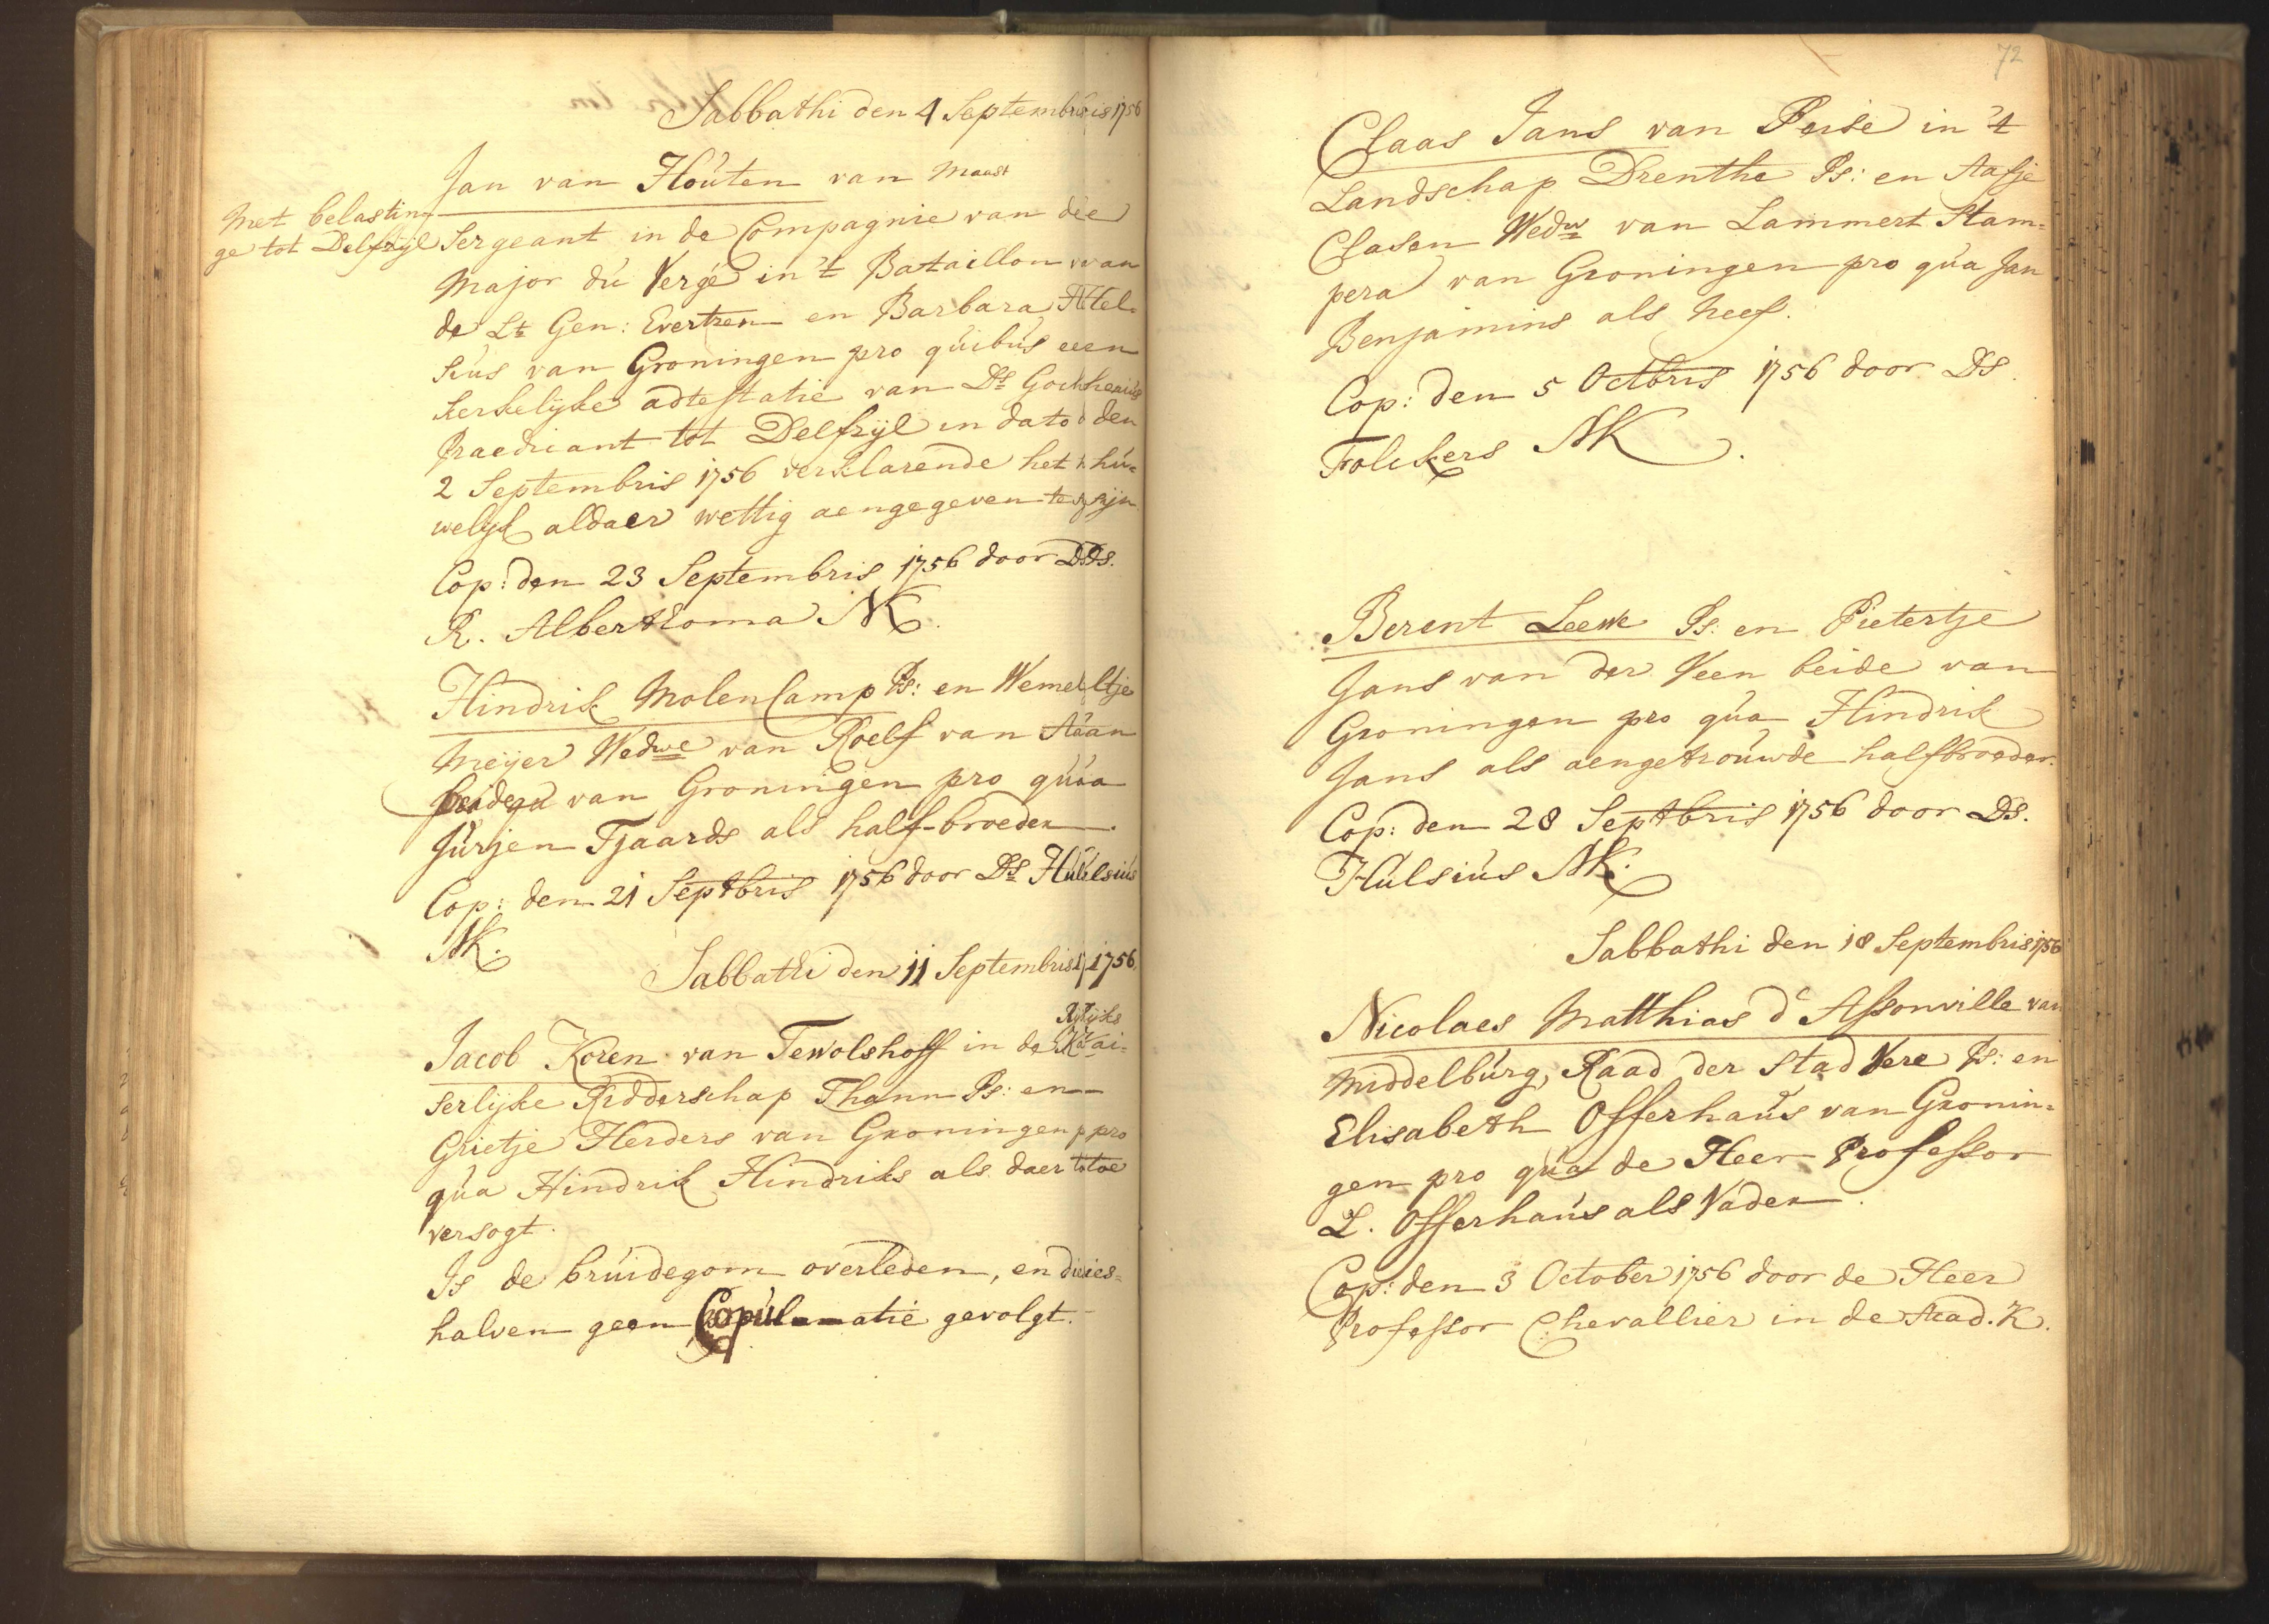 Sabbathi den 4 Septembris 1756
Jan van Houten van Maast
Met belastin-
ge tot Delfzijl
Sergeant in de Compagnie van de
Major du Vergé in 't Bataillon van
de Lt Gen: Evertzen en Barbara Stel-
sius van Groningen pro quibus een
Kerkelijke adtestatie van Ds
Praedicant tot Delfzijl in dato den
2 Septembris 1756 verklarende het hu-
welijk aldaer wettig aengegeven te zijn
Cop: den 23 Septembris 1756 door Ds.
R. Alberthoma NK.
Hindrik Molencamp Ps: en Wemeltje
Meijer Wedwe van Roelf van Aaan
beide van Groningen pro qua
Jurjen Tjaards als half-broeder.
Cop: den 21 Septbris 1756 door Ds Hulsius
NK.
Sabbathi den 11 Septembris 1756
Jacob Koren van Tewolshoff in de Rijks Kai-
serlijke Ridderschap Thann Ps: en
Grietje Herders van Groningen pro
qua Hindrik Hindriks als daer toe
versogt.
Is de bruidegom overleden, en dies-
halven geen Copulatie gevolgt.
72
Claas Jans van Peise in 't
Landschap Drenthe Ps: en Aafje
Clasen Wedw van Lammert Stam-
pera van Groningen pro qua Jan
Benjamins als Neef.
Cop: den 5 Octbris 1756 door Ds.
Folckers NK.
Berent Leewe Ps: en Pietertje
Jans van der Veen beide van
Groningen pro qua Hindrik
Jans als aengetrouwde halfbroeder.
Cop: den 28 Septbris 1756 door Ds.
Hulsius NK.
Sabbathi den 18 Septembris 1756
Nicolaes Matthias d'Assonville van
Middelburg, Raad der Stad Vere Ps: en
Elisabeth Offerhaus van Gronin-
gen pro qua de Heer Professor
L. Offerhaus als Vader.
Cop: den 3 October 1756 door de Heer
Professor Chevallier in de Acad. K.